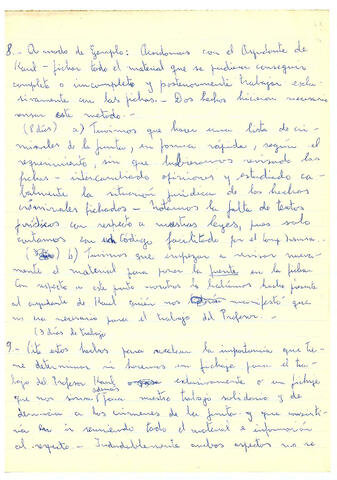 8.- A modo de Ejemplo: Acordamos con el Ayudante de
Kaul - fichar todo el material que se pudiera conseguir
completo o incompleto y posteriormente trabajar exclu-
sivamente con las fichas. - Dos hechos hicieron necesario
revisar este método. -
(8 días) a) Tuvimos que hacer una lista de cri-
minales de la Junta, en forma rápida, según el
requerimiento, sin que hubieramos revisado las
fichas - intercambiado opiniones y estudiado ca-
balmente la situación jurídica de los hechos
criminales fichados - Notamos la falta de textos
jurídicos con respecto a nuestras leyes, pues solo
contamos con un Codigo facilitado por el
b) Tuvimos que empezar a revisar nueva-
mente el material para poner la fuente en la ficha
Con respecto a este punto nosotros lo habíamos hecho presente
al ayudante de Kaul quién nos manifestó que
no era necesario para el trabajo del Profesor. -
(3 días de trabajo
9.- Cito estos hechos para recalcar la importancia que tie-
ne determinar si haremos un fichaje para el tra-
bajo del Profesor Kaul exclusivamente o un fichaje
que nos sirva además para nuestro trabajo solidario y de
denuncia a los crimenes de la Junta y que consisti-
ría en ir reuniendo todo el material e información
al respecto. - Indudablemente ambos aspectos no se